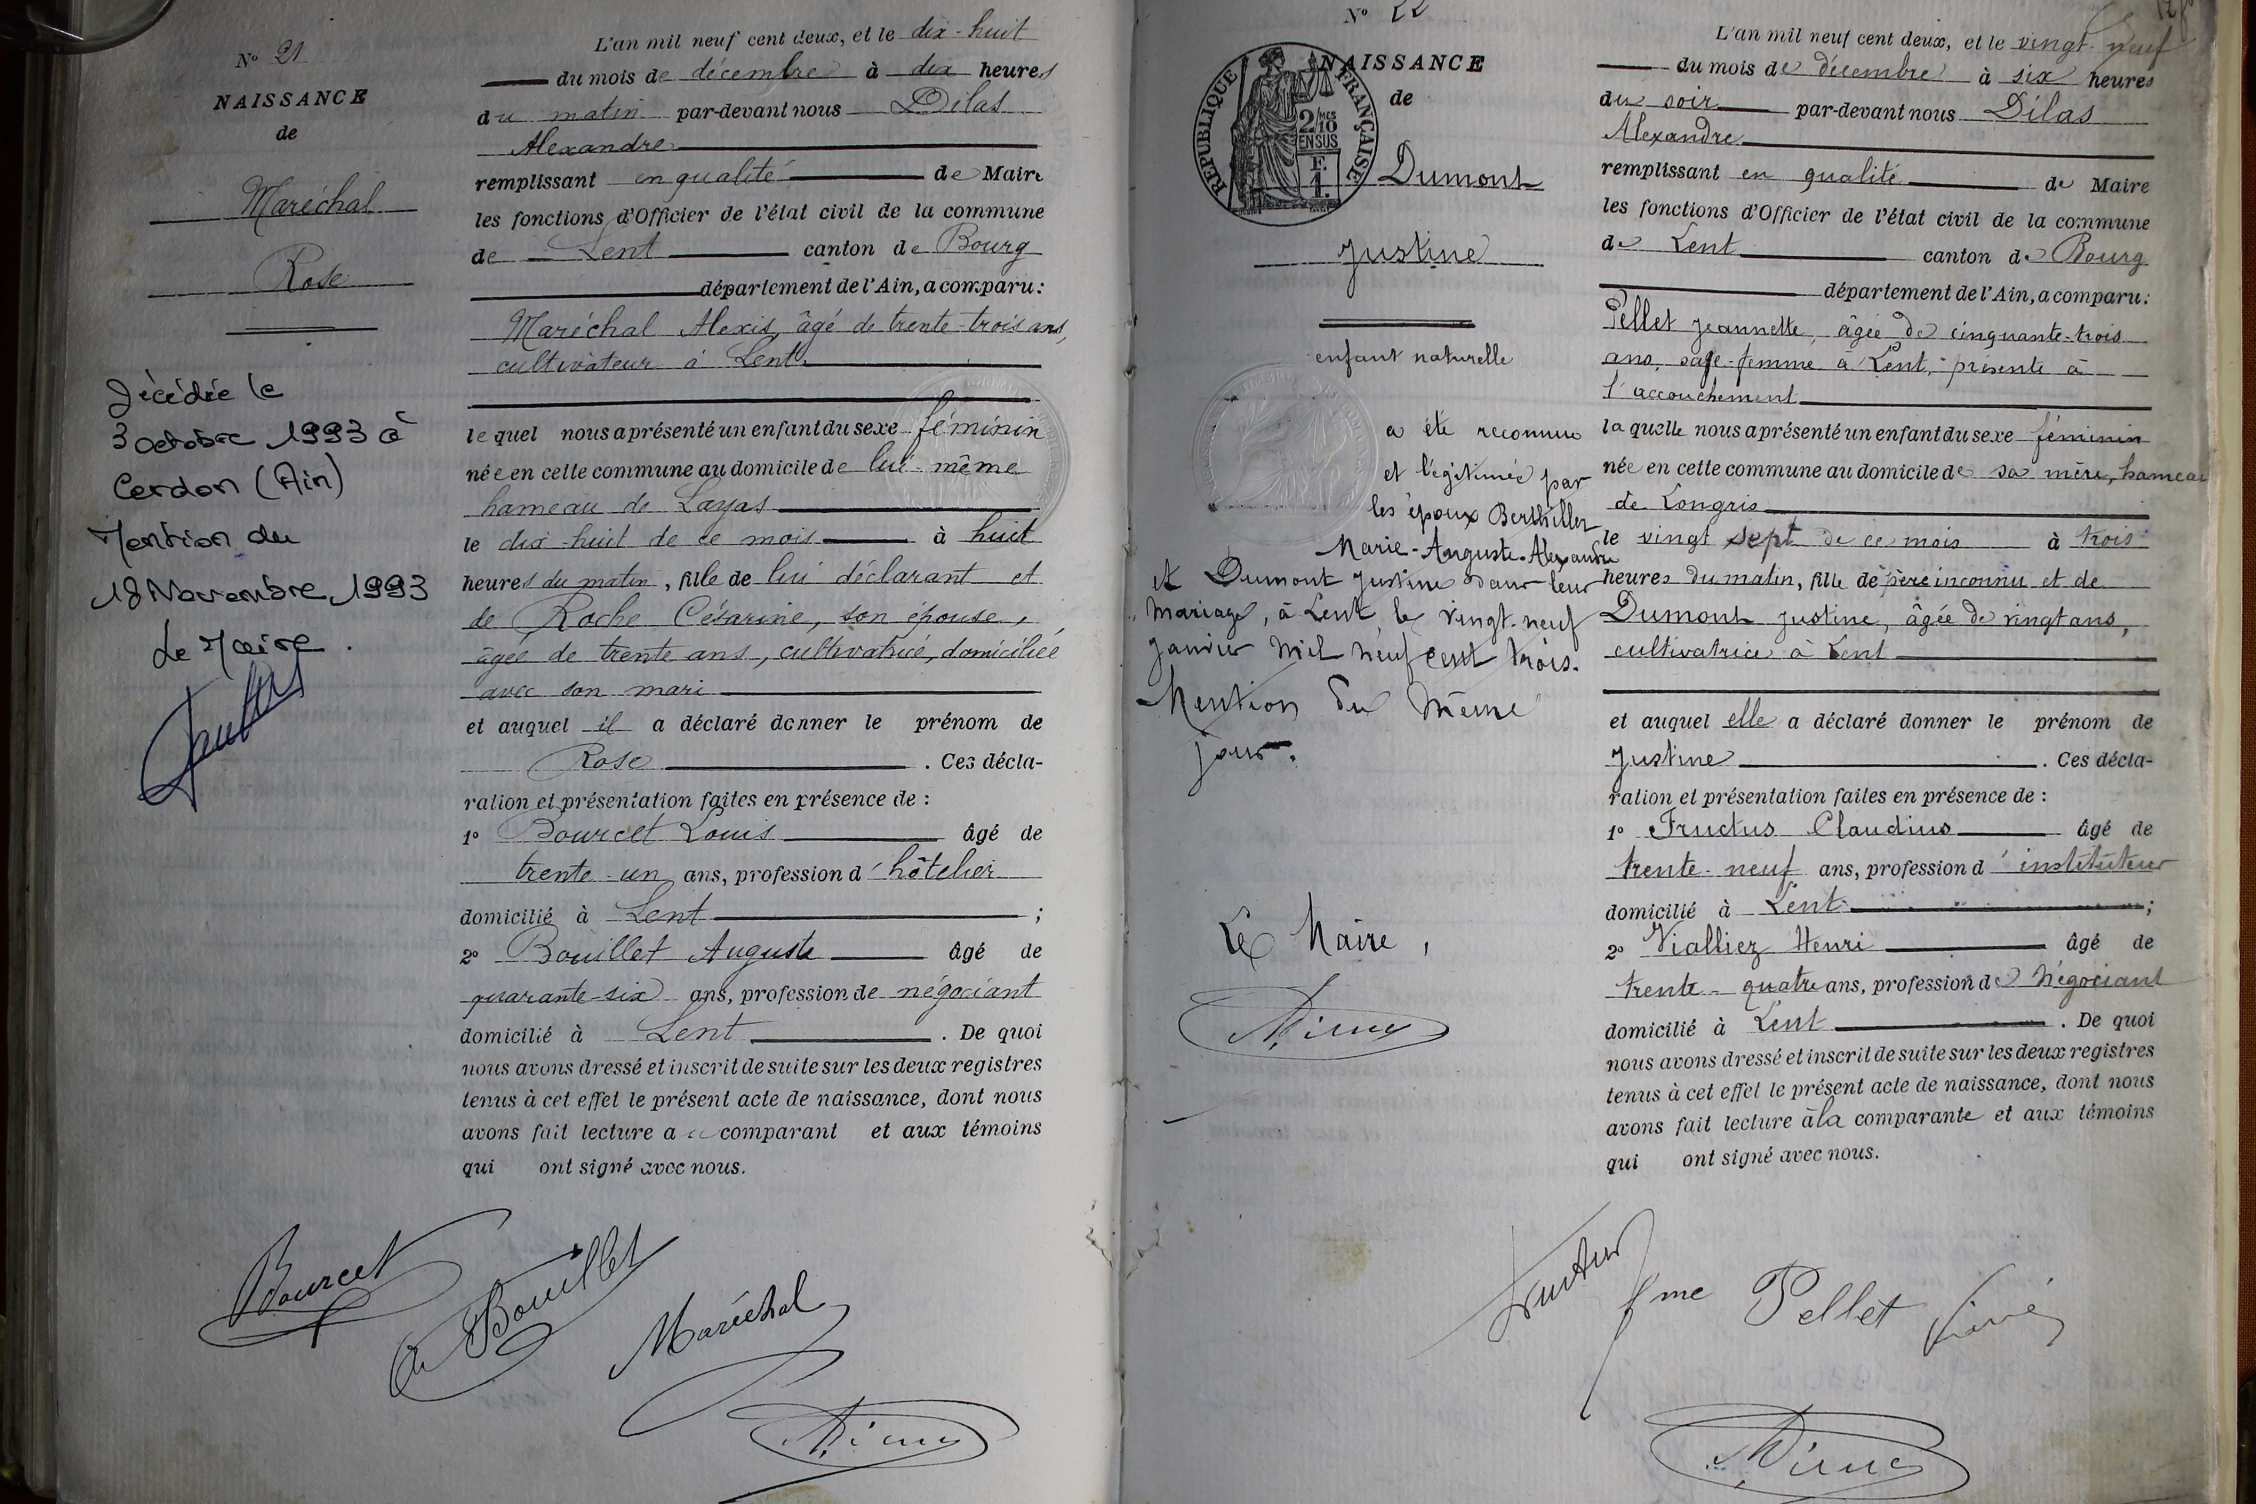 N° 21
NAISSANCE
de
Maréchal
Rose
Décédée le
3 octobre 1993 à
Cerdon (Ain)
Mention du
18 Novembre 1993
Le Maire.
L'an mil neuf cent deux, et le dix-huit
du mois de décembre à dix heures
du matin par-devant nous Dilas
Alexandre
remplissant en qualité de Maire
les fonctions d'Officier de l'état civil de la commune
de Lent canton de Bourg
département de l'Ain, a comparu:
Maréchal Alexis, âgé de trente-trois ans,
cultivateur à Lent.
lequel nous a présenté un enfant du sexe féminin
née en cette commune au domicile de lui-même
hameau de Layas
le dix-huit de ce mois à huit
heures du matin, fille de lui déclarant et
de Roche Césarine, son épouse,
âgée de trente ans, cultivatrice, domiciliée
avec son mari
et auquel il a déclaré donner le prénom de
Rose . Ces décla-
ration et présentation faites en présence de :
1° Bourcet Louis âgé de
trente-un ans, profession d'hôtelier
domicilié à Lent ;
2° Bouillet Auguste âgé de
quarante-six ans, profession de négociant
domicilié à Lent . De quoi
nous avons dressé et inscrit de suite sur les deux registres
tenus à cet effet le présent acte de naissance, dont nous
avons fait lecture au comparant et aux témoins
qui ont signé avec nous.
Bourcet
Bouillet
Maréchal
N° 22
NAISSANCE
de
RÉPUBLIQUE FRANÇAISE
2/10 MES
EN SUS
F.
1.
Dumont
Justine
enfant naturelle
a été reconnue
et légitimée par
les époux Berthillier
Marie-Auguste-Alexandre
et Dumont Justine dans leur
mariage, à Lent, le vingt-neuf
janvier mil neuf cent trois.
Mention du même
jour.
Le Maire,
L'an mil neuf cent deux, et le vingt-neuf
du mois de décembre à six heures
du soir par-devant nous Dilas
Alexandre
remplissant en qualité de Maire
les fonctions d'Officier de l'état civil de la commune
de Lent canton de Bourg
département de l'Ain, a comparu:
Pellet Jeannette, âgée de cinquante-trois
ans, sage-femme à Lent, présente à
l'accouchement
laquelle nous a présenté un enfant du sexe féminin
née en cette commune au domicile de sa mère, hameau
de Longris
le vingt sept de ce mois à trois
heures du matin, fille de père inconnu et de
Dumont Justine, âgée de vingt ans,
cultivatrice à Lent
et auquel elle a déclaré donner le prénom de
Justine . Ces décla-
ration et présentation faites en présence de :
1° Fructus Claudius âgé de
trente-neuf ans, profession d'instituteur
domicilié à Lent ;
2° Vialliez Henri âgé de
trente-quatre ans, profession de négociant
domicilié à Lent . De quoi
nous avons dressé et inscrit de suite sur les deux registres
tenus à cet effet le présent acte de naissance, dont nous
avons fait lecture à la comparante et aux témoins
qui ont signé avec nous.
Fructus
fme Pellet